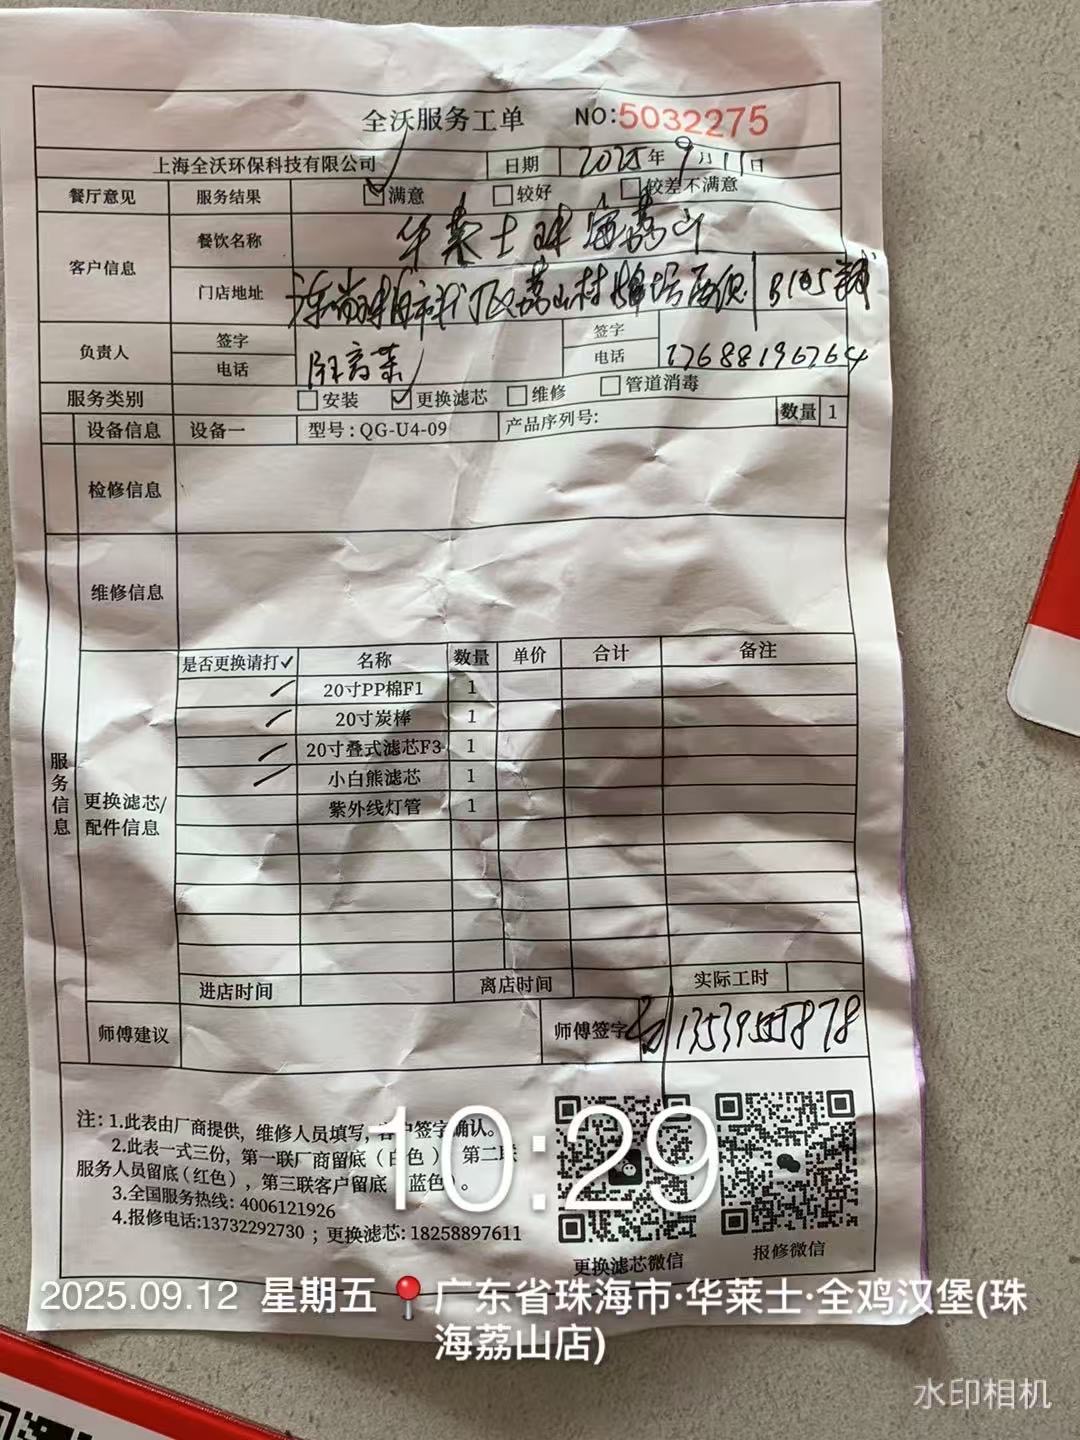 全沃服务工单 NO:5032275
上海全沃环保科技有限公司 日期 2025年9月11日
餐厅意见 服务结果 ☑满意 □较好 □较差不满意
客户信息 餐饮名称 华莱士珠海荔山
门店地址 荔山村 B105铺
负责人 签字 签字
电话 电话
服务类别 □安装 ☑更换滤芯 □维修 □管道消毒
设备信息 设备一 型号:QG-U4-09 产品序列号: 数量 1
检修信息
维修信息
服务信息
更换滤芯/配件信息
是否更换请打✓ 名称 数量 单价 合计 备注
✓ 20寸PP棉F1 1
✓ 20寸炭棒 1
✓ 20寸叠式滤芯F3 1
✓ 小白熊滤芯 1
紫外线灯管 1
进店时间 离店时间 实际工时
师傅建议 师傅签字 878
注: 1.此表由厂商提供, 维修人员填写, 客户签字确认。
2.此表一式三份, 第一联厂商留底(白色) 第二联
服务人员留底(红色), 第三联客户留底(蓝色)。
3.全国服务热线: 4006121926
4.报修电话:13732292730 ; 更换滤芯: 18258897611
更换滤芯微信 报修微信
10:29
2025.09.12 星期五 广东省珠海市·华莱士·全鸡汉堡(珠
海荔山店)
水印相机